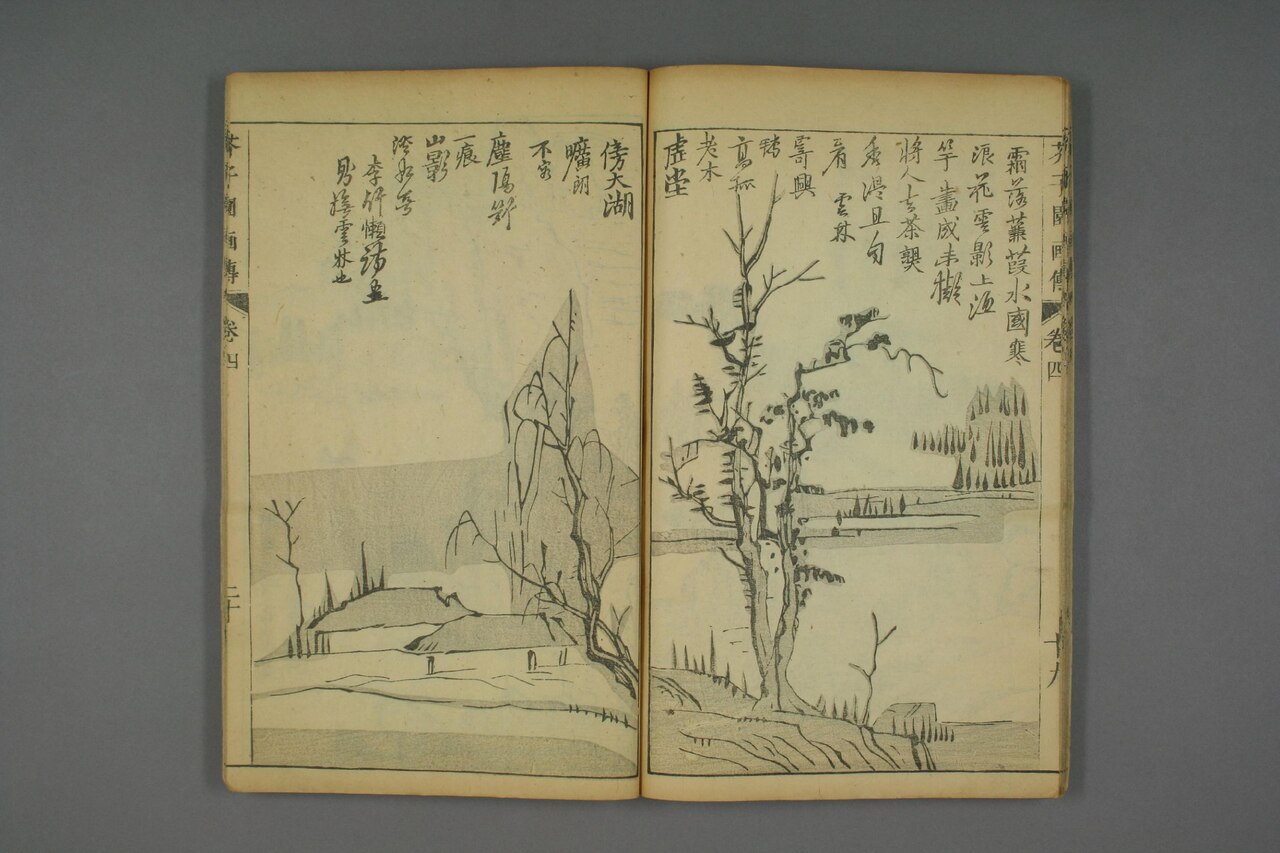 芥子園畫傳 卷四 十九
霜落蒹葭水國寒
浪花雲影上漁
竿畫成未擬
將人去茶熟
香温且自
看 雲林
寄興
高孤
老木
虛堂
傍大湖
曠朗
不容
塵隔斷
一痕
山影
澹如無
李竹懶詩
雲林也
芥子園畫傳 卷四 二十